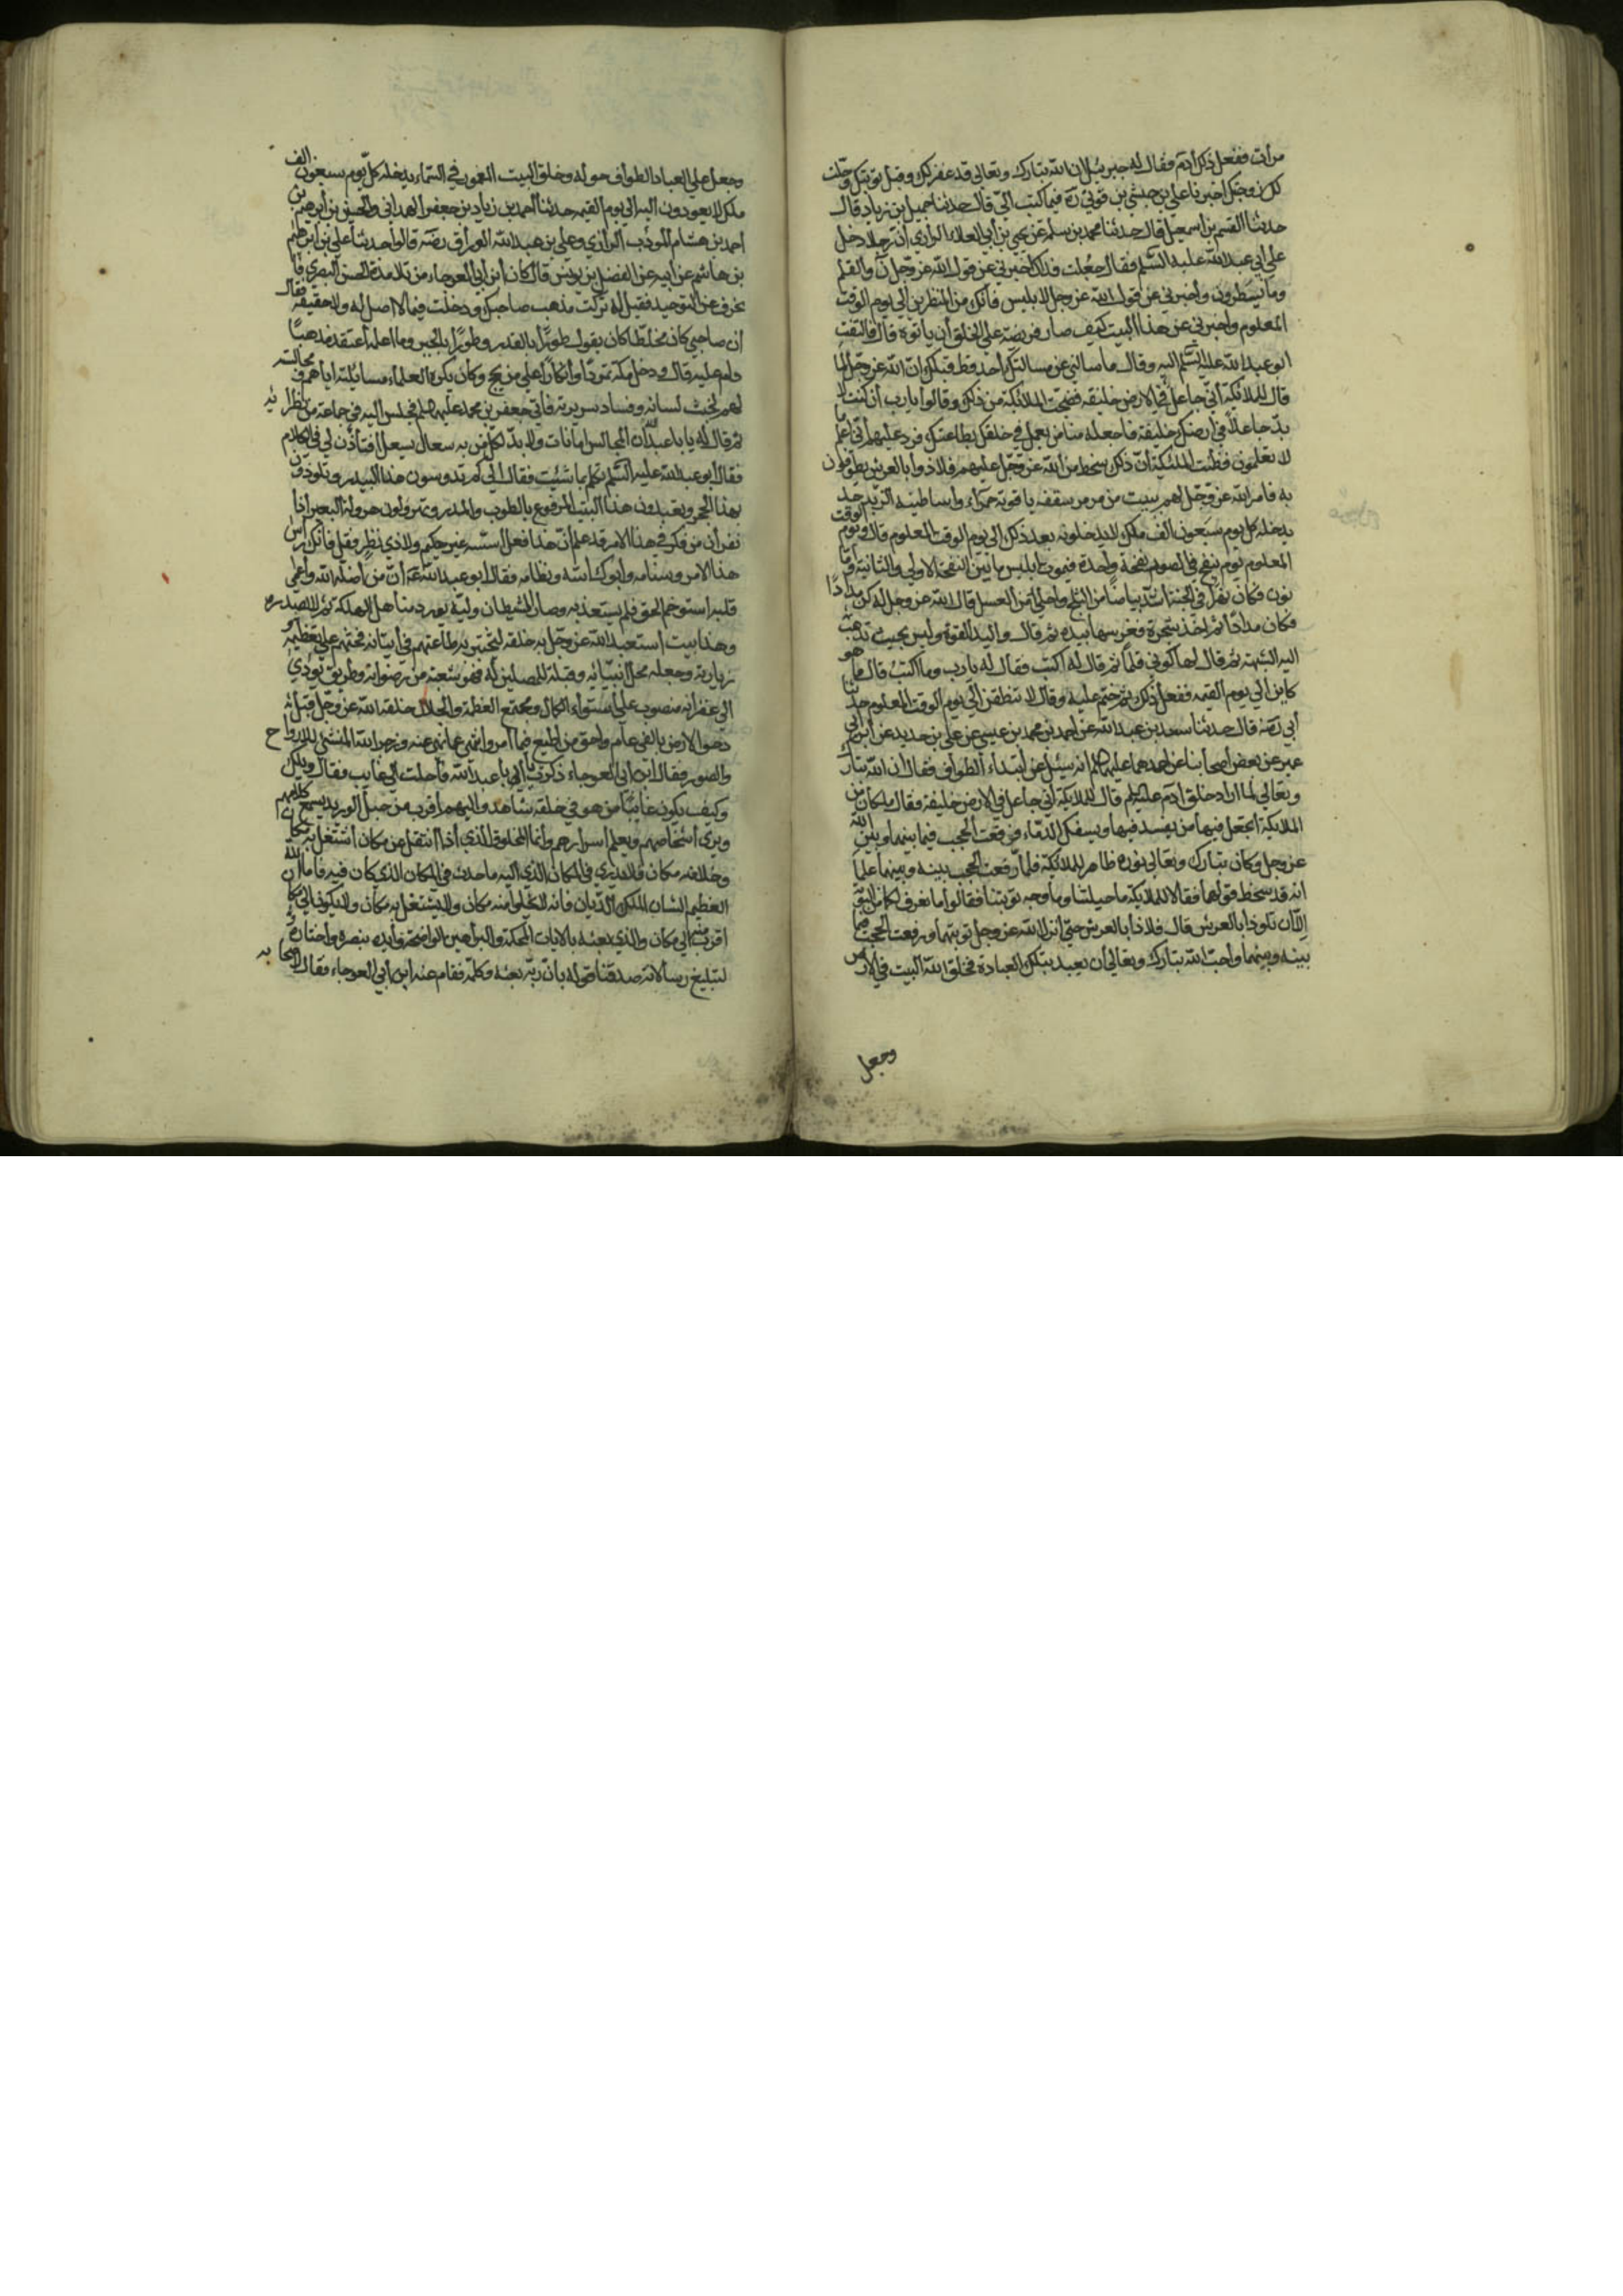 مرأت ففعل ذلك آدم فقال له جبرئيل ان الله تبارك وتعالى قد غفر لك وقبل توبتك وحلت
لك زوجتك اخبرنا علي بن حبشي بن قوني ره فيما كتب الي قال حدثنا جميل بن زياد قال
حدثنا القسم بن اسمعيل قال حدثنا محمد بن سلمة عن يحيى بن أبي العلاء الرازي أن رجلا دخل
على ابي عبد الله عليه السلم فقال جعلت فداك اخبرني عن قول الله عز وجل ن والقلم
وما يسطرون واخبرني عن قول الله عز وجل لابليس فانك من المنظرين الى يوم الوقت
المعلوم واخبرني عن هذا البيت كيف صار فريضة على الخلق أن يأتوه قال فالتفت
ابو عبد الله عليه السلم اليه وقال ما سألني عن مسألتك أحد قط قبلك ان الله عز وجل لما
قال للملائكة أني جاعل في الارض خليفة فضجت الملائكة من ذلك وقالوا يا رب أن كنت لا
بد جاعلا في ارضك خليفة فاجعله منا من يعمل في خلقك بطاعتك فرد عليهم أني اعلم ما
لا تعلمون فظنت الملئكة أن ذلك سخط من الله عز وجل عليهم فلاذوا بالعرش يطوفون
به فامر الله عز وجل لهم ببيت من مرمر سقفه ياقوتة حمراء واساطينه الزبرجد
يدخله كل يوم سبعون الف ملك لا يدخلونه بعد ذلك الى يوم الوقت المعلوم قال ويوم الوقت
المعلوم يوم ينفخ في الصور نفخة واحدة فيموت ابليس ما بين النفخة الاولى والثانية وأما
نون فكان نهرا في الجنة اشد بياضا من الثلج واحلى من العسل قال الله عز وجل له كن مدادا
فكان مدادا ثم اخذ شجرة فغرسها بيده ثم قال واليد القوة وليس بحيث تذهب
اليه المشبهة ثم قال لها كوني قلما ثم قال له اكتب فقال له يا رب وما اكتب قال ما هو
كاين الى يوم القيمة ففعل ذلك ثم ختم عليه وقال لا تنطقن الى يوم الوقت المعلوم حدثنا
أبي رضه قال حدثنا سعد بن عبد الله عن احمد بن محمد بن عيسى عن علي بن حديد عن أبن أبي
عمير عن بعض أصحابنا عن احدهما عليهما السلم انه سئل عن ابتداء الطواف فقال ان الله تبارك
وتعالى لما اراد خلق آدم عليه السلم قال للملائكة أني جاعل في الارض خليفة فقال ملكان من
الملايكة اتجعل فيها من يفسد فيها ويسفك الدماء فوقعت الحجب فيما بينهما وبين الله
عز وجل وكان تبارك وتعالى نوره ظاهر للملائكة فلما وقعت الحجب بينه وبينهما علما
انه قد سخط قولهما فقالا للملايكة ما حيلتنا وما وجه توبتنا فقالوا ما نعرف لكما من التوبة
الا ان تلوذا بالعرش قال فلاذا بالعرش حتى انزل الله عز وجل توبتهما ورفعت الحجب فيما
بينه وبينهما وأحب الله تبارك وتعالى أن يعبد بتلك العبادة فخلق الله البيت في الارض
وجعل
وجعل على العباد الطواف حوله وخلق البيت المعمور في السماء يدخله كل يوم سبعون الف
ملك لا يعودون اليه الى يوم القيمة حدثنا احمد بن زياد بن جعفر الهمداني والحسين بن أبرهيم بن
احمد بن هشام المؤدب الرازي وعلي بن عبد الله الوراق رضه قالوا حدثنا علي بن أبرهيم
بن هاشم عن ابيه عن الفضل بن يونس قال كان أبن أبي العوجاء من تلامذة الحسن البصري فا
نحرف عن التوحيد فقيل له تركت مذهب صاحبك ودخلت فيما لا اصل له ولا حقيقة فقال
ان صاحبي كان مخلطا كان يقول طورا بالقدر وطورا بالجبر وما اعلمه اعتقد مذهبا
دام عليه قال ودخل مكة تمردا وأنكارا على من يحج وكان يكره العلماء مسايلته اياهم ومجالسته
لهم لخبث لسانه وفساد سريرته فأتى جعفر بن محمد عليهما السلم فجلس اليه في جماعة من نظرائه
ثم قال له يا ابا عبد الله ان المجالس امانات ولا بد لكل من به سعال أن يسعل أفتأذن لي في الكلام
فقال أبو عبد الله عليه السلم تكلم بما شئت فقال الى كم تدوسون هذا البيدر وتلوذون
بهذا الحجر وتعبدون هذا البيت المرفوع بالطوب والمدر وتهرولون هرولة البعير اذا
نفر أن من فكر في هذا الامر قد علم أن هذا فعل أسسه غير حكيم ولا ذي نظر فقل فانك راس
هذا الامر وسنامه وأبوك اسه ونظامه فقال ابو عبد الله ع أن من أضله الله وأعمى
قلبه استوخم الحق فلم يستعذبه وصار الشيطان وليه يورده مناهل الهلكة ثم لا يصدره
وهذا بيت استعبد الله عز وجل به خلقه ليختبر به طاعتهم في أتيانه فحثهم على تعظيمه و
زيارته وجعله محل أنبيائه وقبلة للمصلين له فهو شعبة من رضوانه وطريق يؤدي
الى غفرانه منصوب على استواء الكمال ومجتمع العظمة والجلال خلقه الله عز وجل قبل
دحو الارض بالفي عام واحق من اطيع فيما امر وانتهي عما نهى عنه وزجر الله المنشئ للارواح
والصور فقال ابن أبي العوجاء ذكرت يا أبا عبد الله فأحلت على غايب فقال ويلك
وكيف يكون غائبا من هو في خلقه شاهد واليهم أقرب من حبل الوريد يسمع كلامهم
ويرى اشخاصهم ويعلم اسرارهم وأنما المخلوق الذي اذا انتقل عن مكان اشتغل به مكان
وخلا منه مكان فلا يدري في المكان الذي اليه ما حدث في المكان الذي كان فيه فأما الله
العظيم الشان الملك الديان فانه لا يخلو منه مكان ولا يشتغل به مكان ولا يكون الى مكان
اقرب منه الى مكان والذي بعثه بالايات المحكمة والبراهين الواضحة وأيده بنصره واختاره
لتبليغ رسالاته صدقنا قوله بأن ربه بعثه وكلمه فقام عنه ابن أبي العوجاء فقال لاصحابه